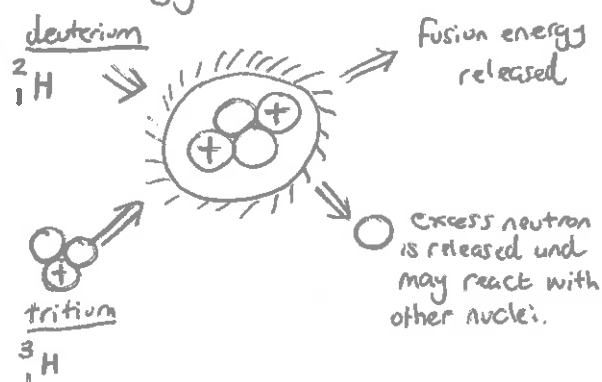 deuterium
²₁H
fusion energy
released
+
+
+
tritium
³₁H
excess neutron
is released und
may react with
other nuclei.